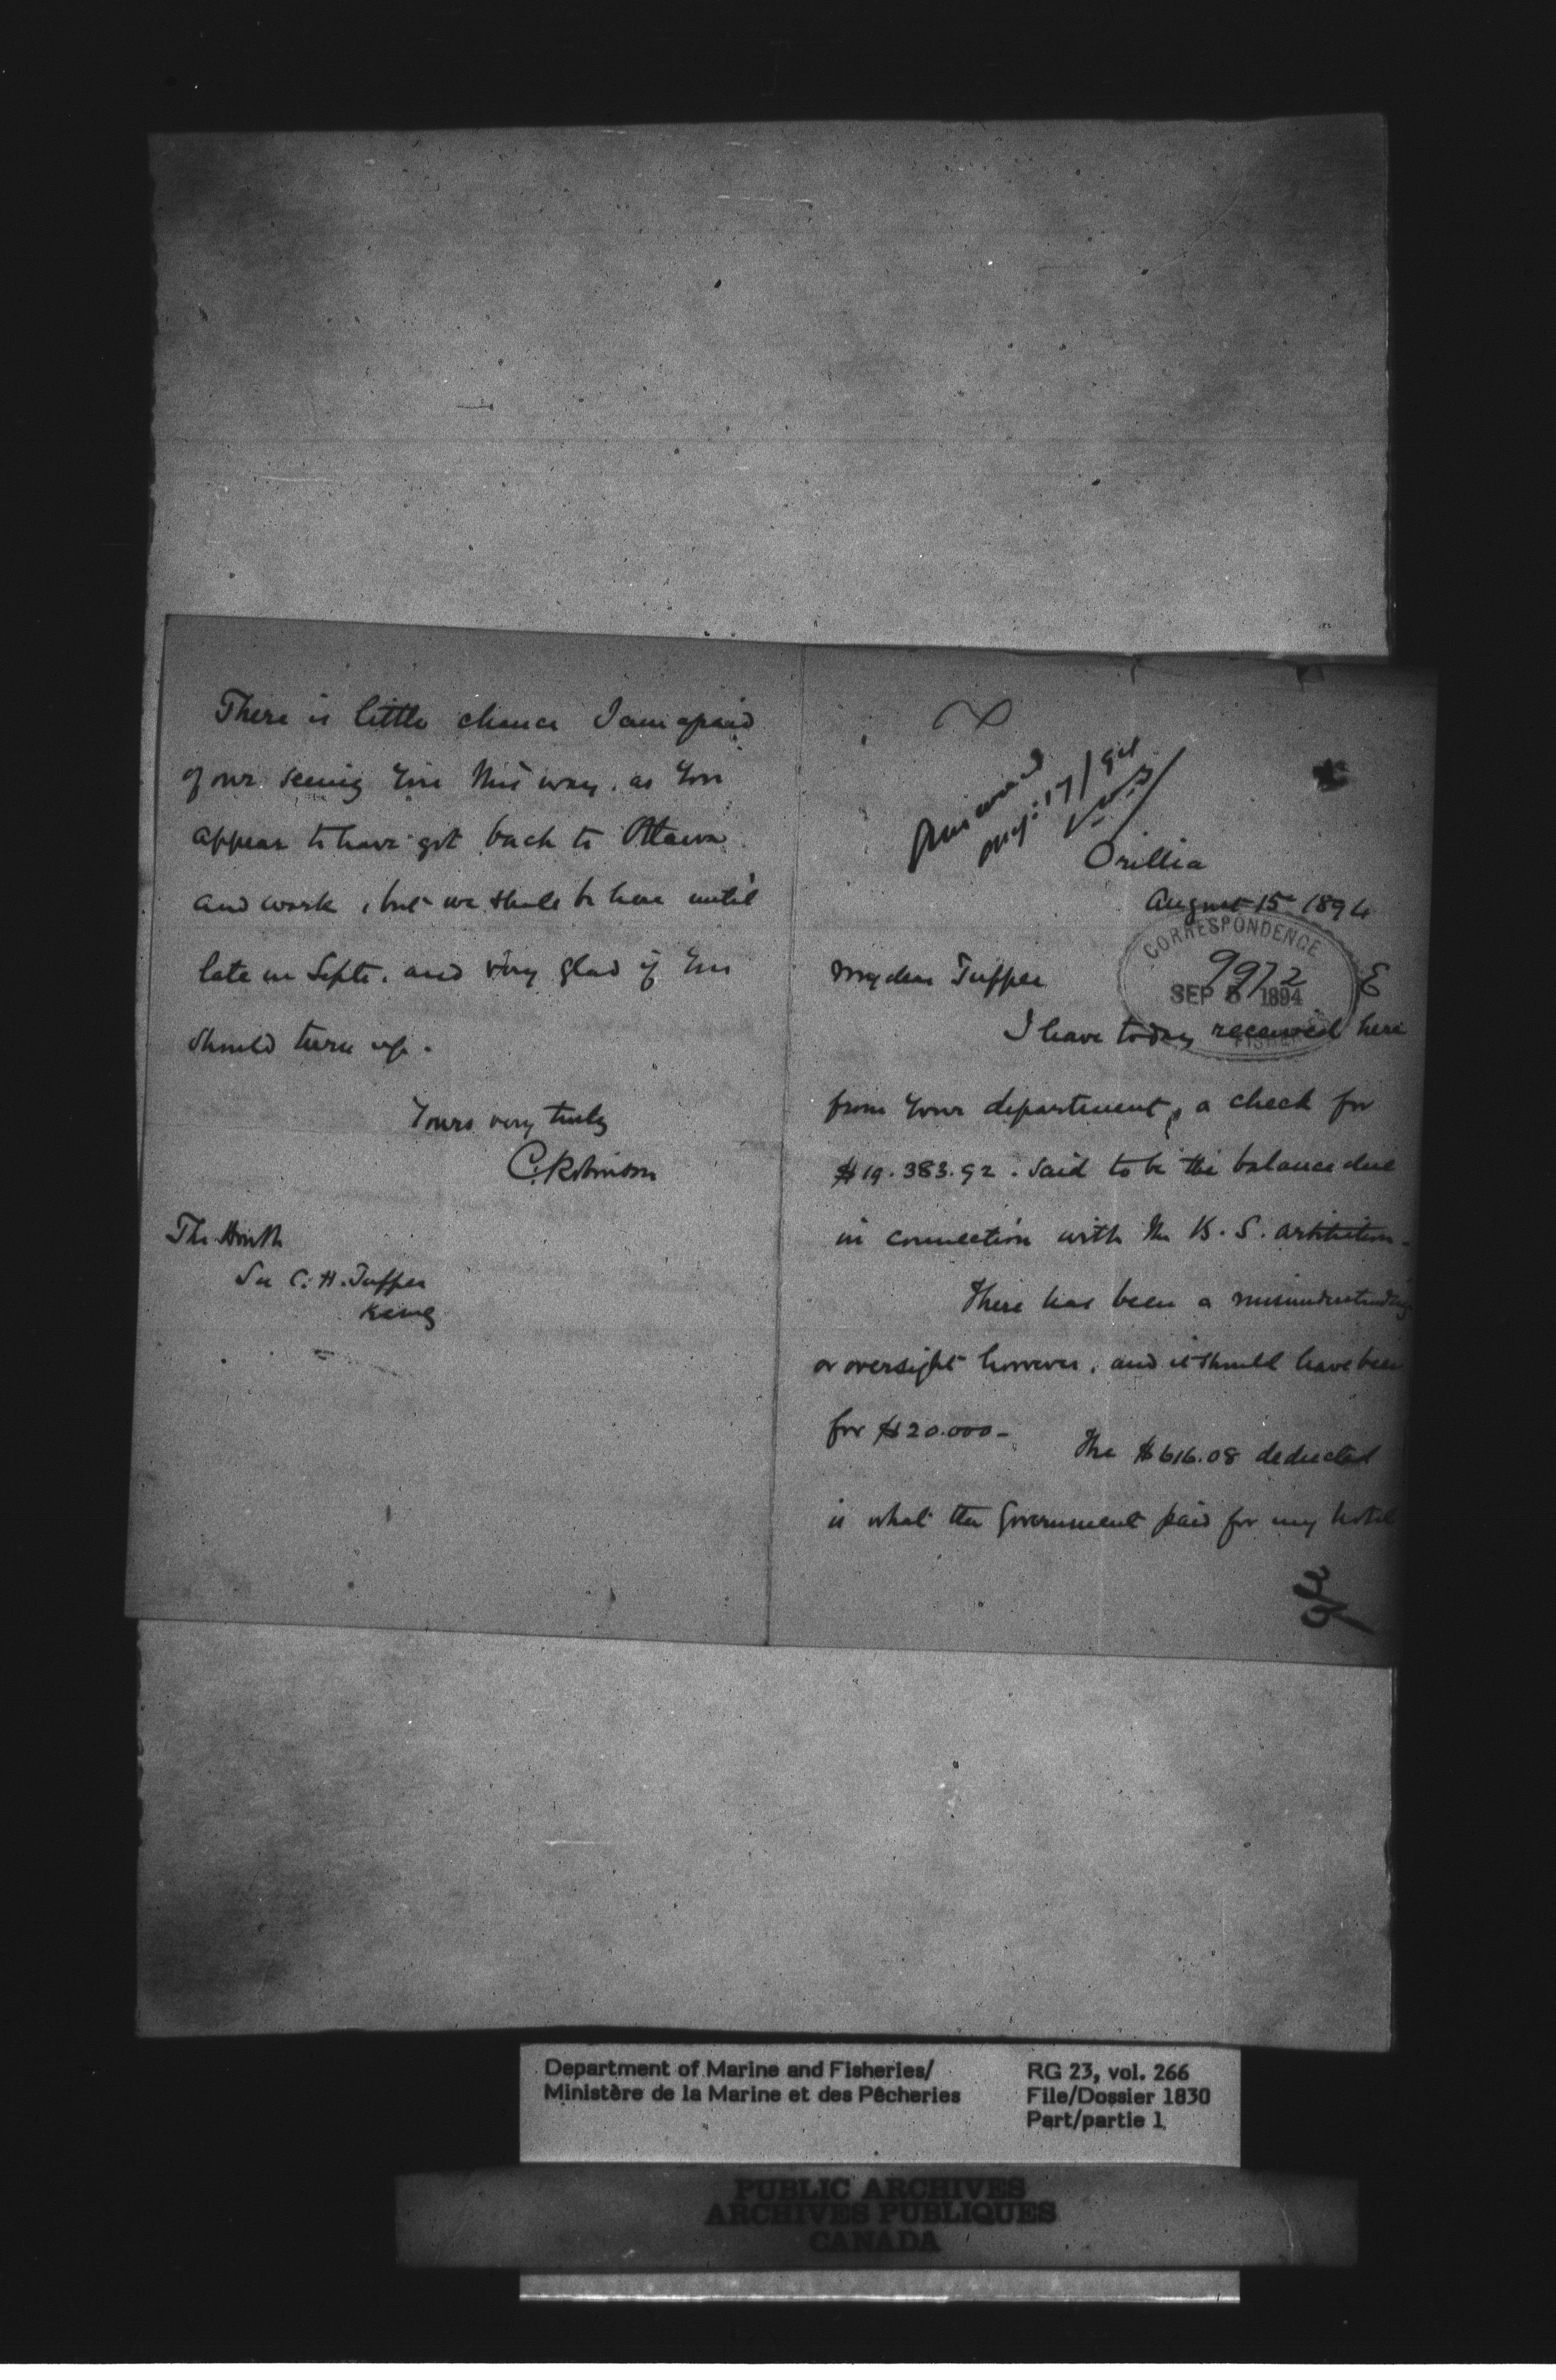 There is little chance I am afraid
of our seeing you this way, as you
appear to have got back to Ottawa
and work, but we shall be here until
late in Septr. and very glad if you
should turn up.
Yours very truly
C. Robinson
The Honble
Sir C. H. Tupper
Answered
Aug: 17/94
Orillia
August 15 1894
CORRESPONDENCE
9972 E
SEP 5 1894
FISHERIES
My dear Tupper
I have today received here
from your department, a check for
$19.383.92. said to be the balance due
in connection with the B. S. arbitration-
There has been a misunderstanding
or oversight however, and it should have been
for $20.000-
The $616.08 deducted
is what the Government paid for my hotel
Department of Marine and Fisheries/
Ministère de la Marine et des Pêcheries
RG 23, vol. 266
File/Dossier 1830
Part/partie 1
PUBLIC ARCHIVES
ARCHIVES PUBLIQUES
CANADA